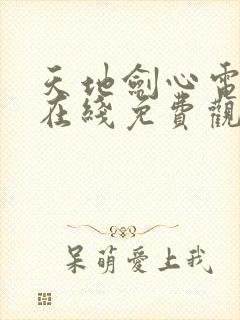 天地劍心電
在綫免費觀
呆萌愛上我